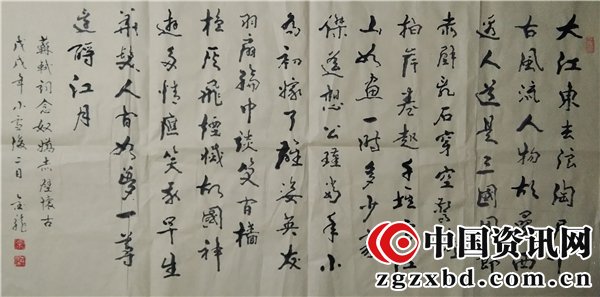 大江東去浪陶尽
古風流人物故壘西
邊人道是三國周郎
赤壁乱石穿空驚
拍岸卷起千堆江
山如畫一時多少
傑遥想公瑾當年小
喬初嫁了雄姿英发
羽扇綸巾談笑间檣
櫓灰飛煙滅故國神
遊多情應笑我早生
華髮人间如夢一尊
還酹江月
蘇軾詞念奴嬌赤壁懷古
戊戌年小雪後二日 金龍
中国资讯网
zgzxbd.com.cn